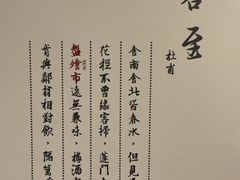 客至
杜甫
舍南舍北皆春水，但見
花徑不曾緣客掃，蓬門
盤飧市遠無兼味，樽酒
肯與鄰翁相對飲，隔籬